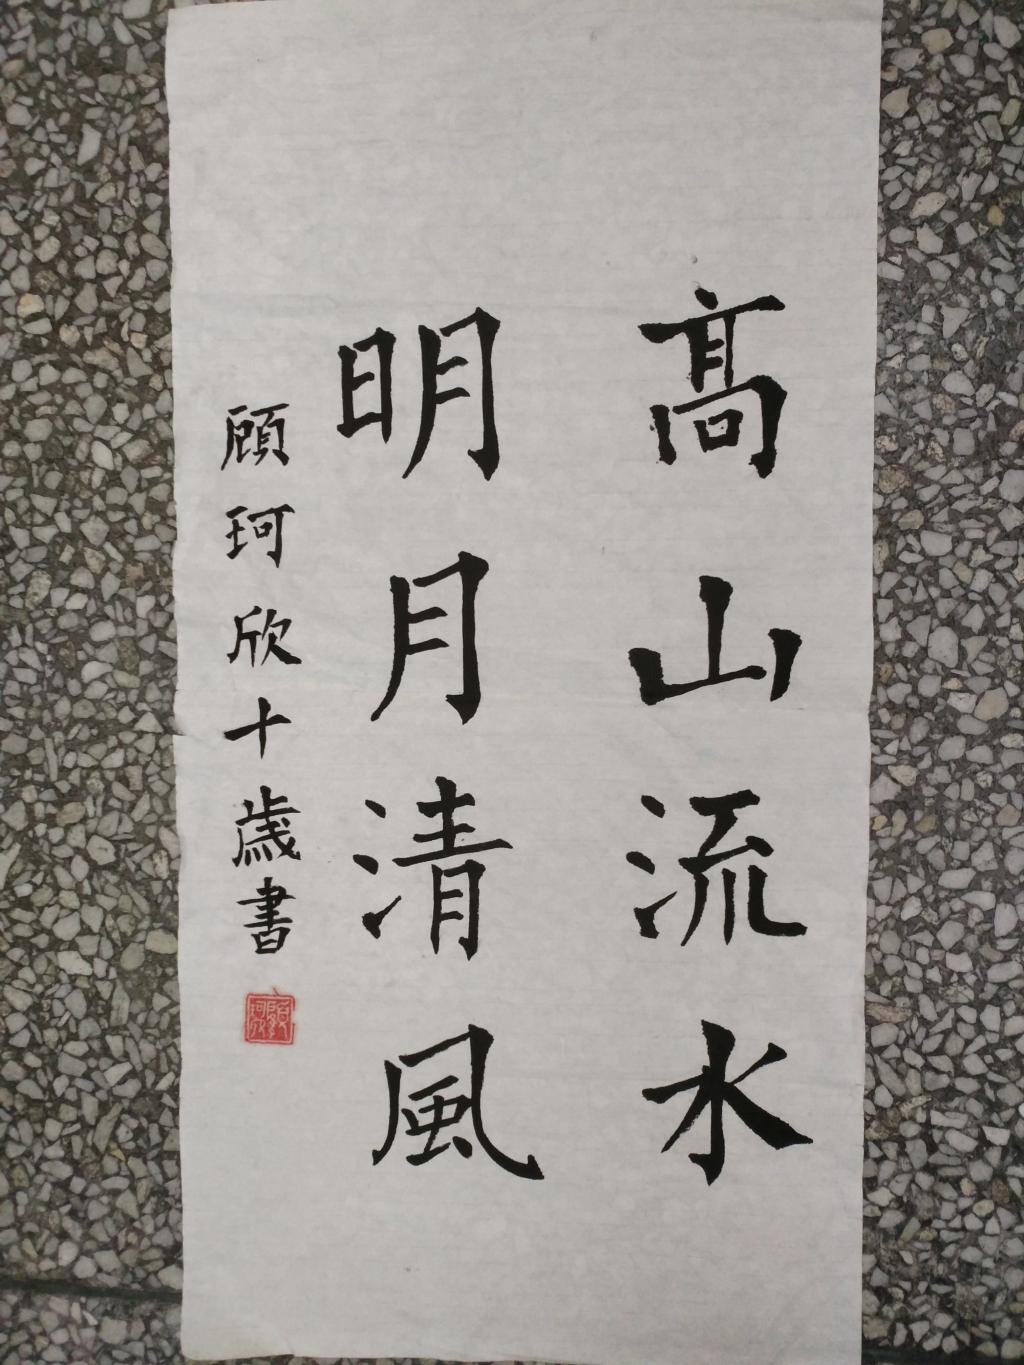 髙山流水
明月清風
顧珂欣十歲書